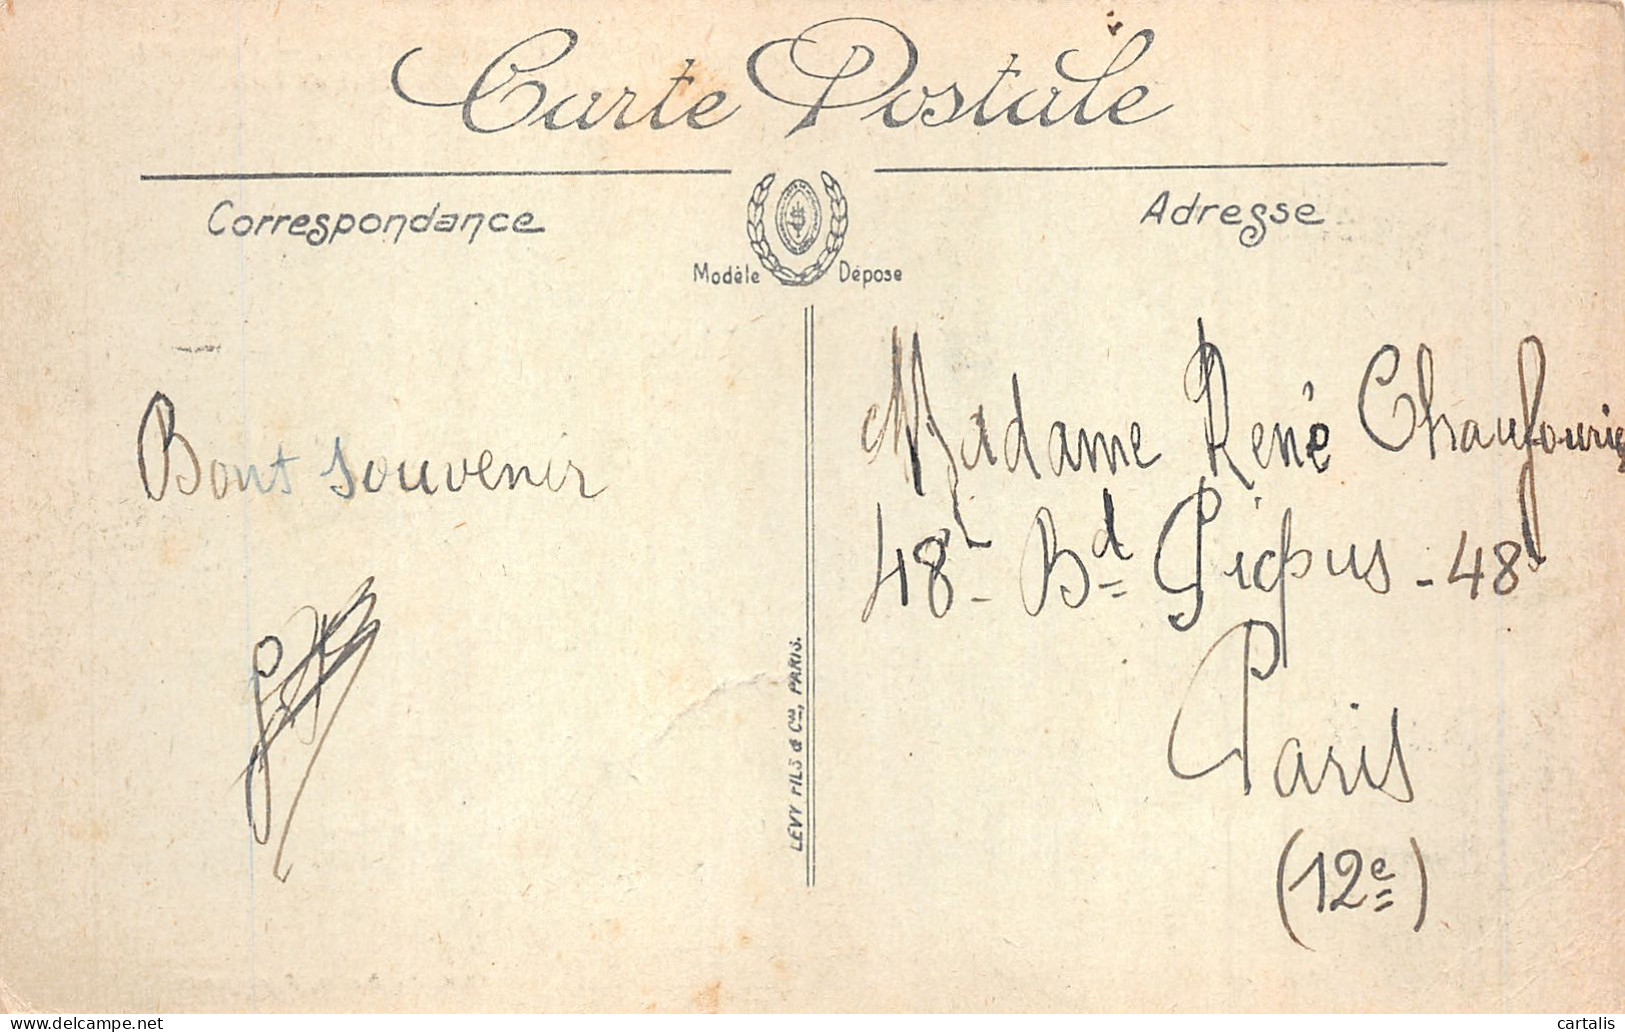 Carte Postale
Correspondance
Adresse
Modèle Déposé
Bont souvenir
LEVY FILS & Cie, PARIS.
Madame René Chaufourier
48 - Bd Picpus - 48
Paris
(12e)
delcampe.net
cartalis